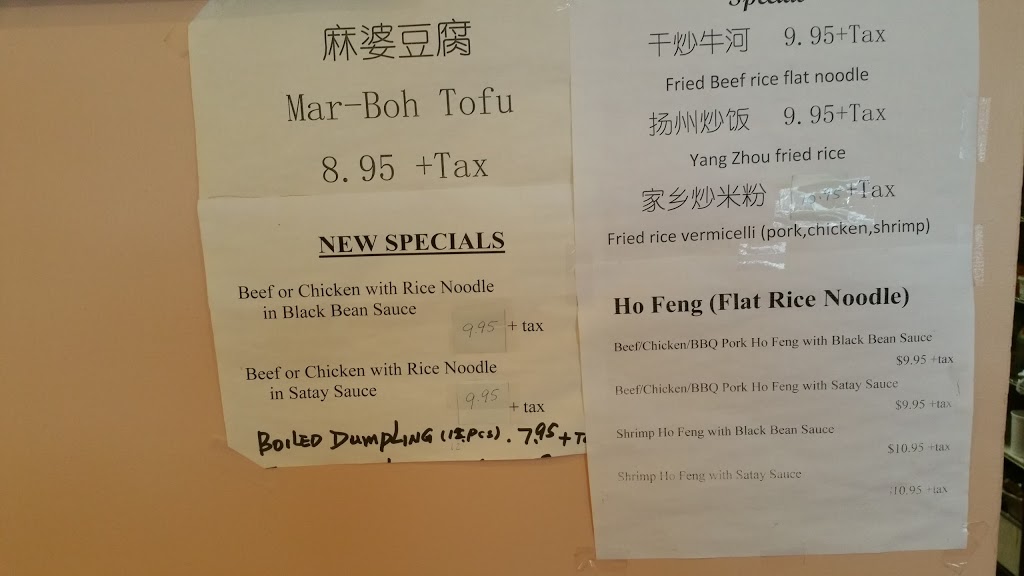 麻婆豆腐
Mar-Boh Tofu
8.95 +Tax
NEW SPECIALS
Beef or Chicken with Rice Noodle
in Black Bean Sauce
9.95 + tax
Beef or Chicken with Rice Noodle
in Satay Sauce
9.95 + tax
BOILED DUMPLING (12 PCS). 7.95 + T
干炒牛河 9.95+Tax
Fried Beef rice flat noodle
扬州炒饭 9.95+Tax
Yang Zhou fried rice
家乡炒米粉 +Tax
Fried rice vermicelli (pork,chicken,shrimp)
Ho Feng (Flat Rice Noodle)
Beef/Chicken/BBQ Pork Ho Feng with Black Bean Sauce
$9.95 +tax
Beef/Chicken/BBQ Pork Ho Feng with Satay Sauce
$9.95 +tax
Shrimp Ho Feng with Black Bean Sauce
$10.95 +tax
Shrimp Ho Feng with Satay Sauce
10.95 +tax